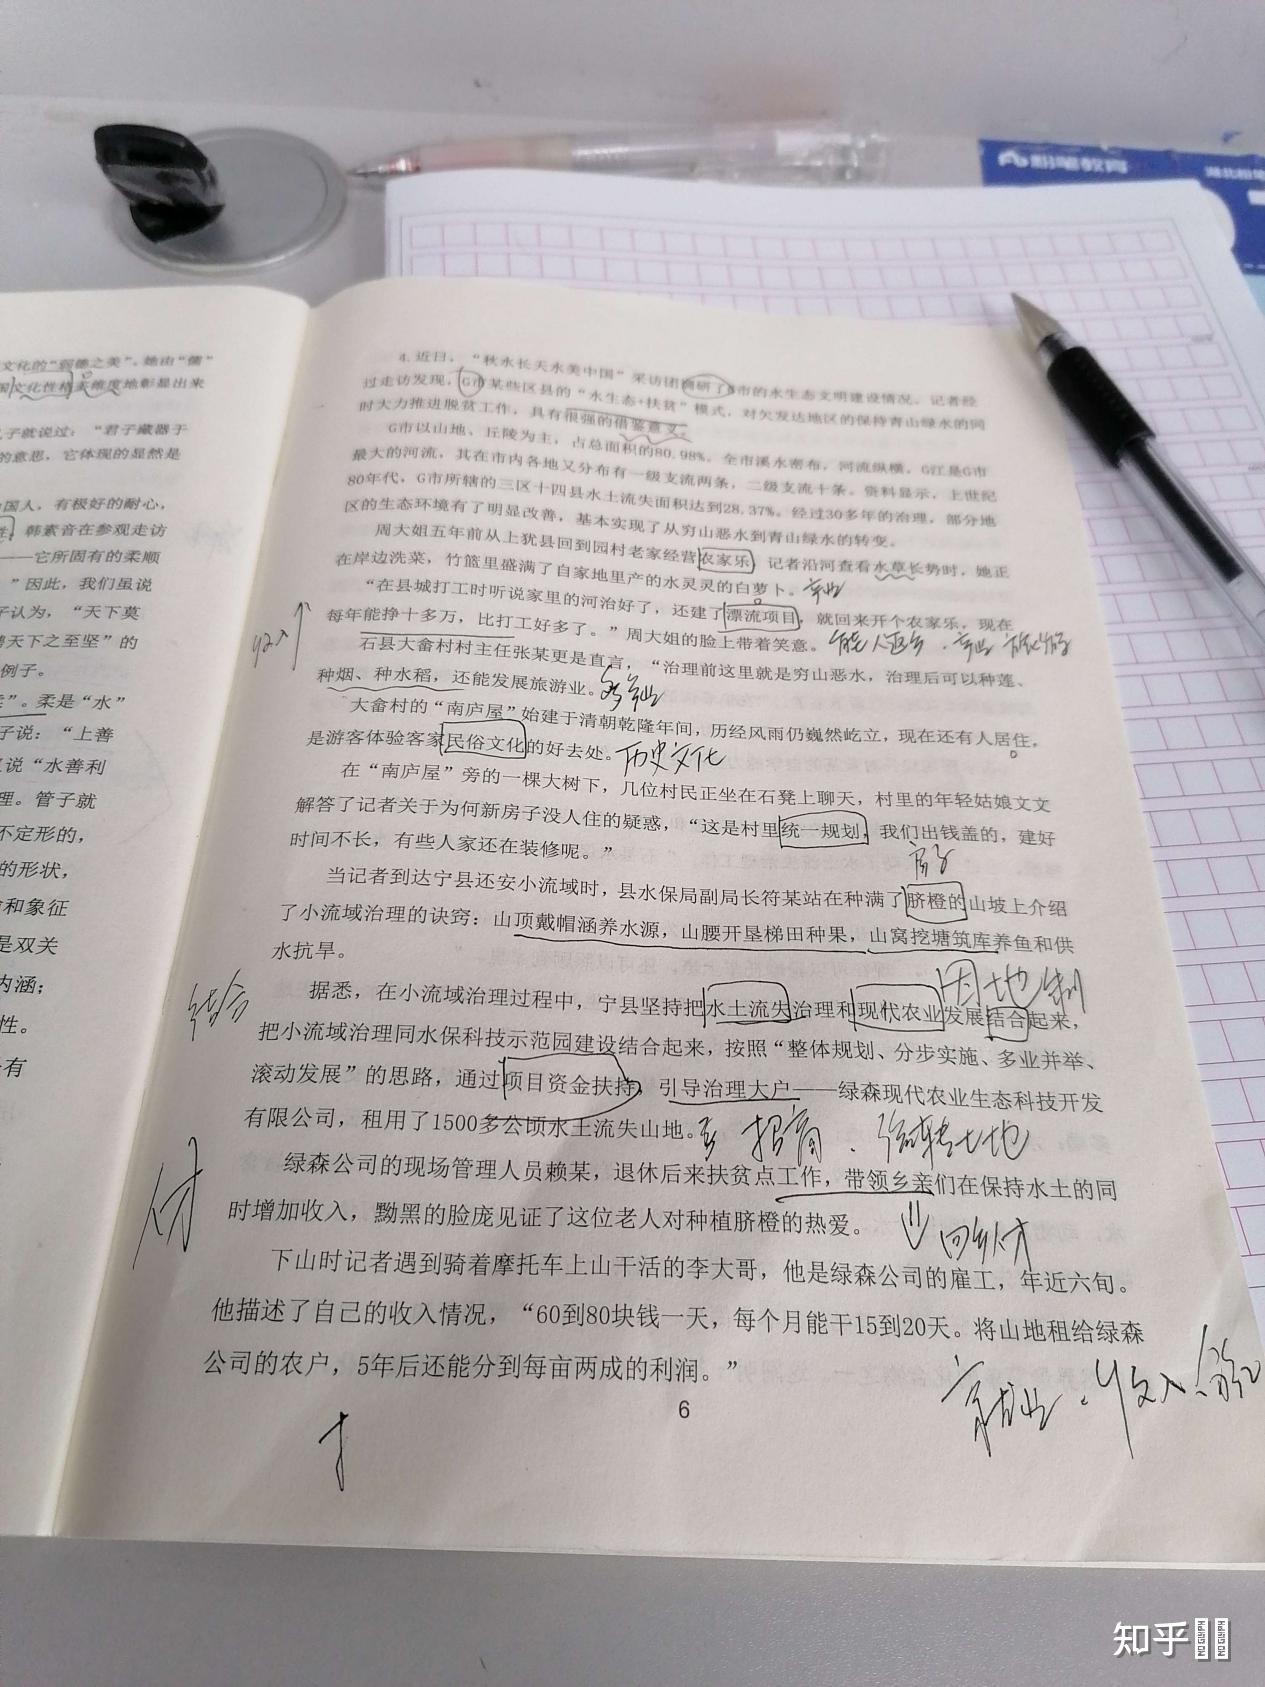 粉笔教育
文化的“弱德之美”。她由“儒”
国文化性格美维度地彰显出来
孔子就说过：“君子藏器于
的意思，它体现的显然是
中国人，有极好的耐心，
性，韩素音在参观走访
——它所固有的柔顺
”因此，我们虽说
子认为，“天下莫
骋天下之至坚”的
例子。
柔”。柔是“水”
子说：“上善
说“水善利
理。管子就
不定形的，
的形状，
和象征
是双关
内涵；
性。
有
4.近日，“秋水长天水美中国”采访团调研了G市的水生态文明建设情况。记者经
过走访发现，G市某些区县的“水生态+扶贫”模式，对欠发达地区的保持青山绿水的同
时大力推进脱贫工作，具有很强的借鉴意义。
G市以山地、丘陵为主，占总面积的80.98%。全市溪水密布，河流纵横。G江是G市
最大的河流，其在市内各地又分布有一级支流两条，二级支流十条。资料显示，上世纪
80年代，G市所辖的三区十四县水土流失面积达到28.37%。经过30多年的治理，部分地
区的生态环境有了明显改善，基本实现了从穷山恶水到青山绿水的转变。
周大姐五年前从上犹县回到园村老家经营农家乐，记者沿河查看水草长势时，她正
在岸边洗菜，竹篮里盛满了自家地里产的水灵灵的白萝卜。
“在县城打工时听说家里的河治好了，还建了漂流项目，就回来开个农家乐，现在
每年能挣十多万，比打工好多了。”周大姐的脸上带着笑意。
收入
石县大畲村村主任张某更是直言，“治理前这里就是穷山恶水，治理后可以种莲、
种烟、种水稻，还能发展旅游业。”
大畲村的“南庐屋”始建于清朝乾隆年间，历经风雨仍巍然屹立，现在还有人居住，
是游客体验客家民俗文化的好去处。 历史文化
在“南庐屋”旁的一棵大树下，几位村民正坐在石凳上聊天，村里的年轻姑娘文文
解答了记者关于为何新房子没人住的疑惑，“这是村里统一规划，我们出钱盖的，建好
时间不长，有些人家还在装修呢。” 房子
当记者到达宁县还安小流域时，县水保局副局长符某站在种满了脐橙的山坡上介绍
了小流域治理的诀窍：山顶戴帽涵养水源，山腰开垦梯田种果，山窝挖塘筑库养鱼和供
水抗旱。
因地制
结合
据悉，在小流域治理过程中，宁县坚持把水土流失治理和现代农业发展结合起来，
把小流域治理同水保科技示范园建设结合起来，按照“整体规划、分步实施、多业并举、
滚动发展”的思路，通过项目资金扶持，引导治理大户——绿森现代农业生态科技开发
有限公司，租用了1500多公顷水土流失山地。 招商、流转土地
人才
绿森公司的现场管理人员赖某，退休后来扶贫点工作，带领乡亲们在保持水土的同
时增加收入，黝黑的脸庞见证了这位老人对种植脐橙的热爱。
下山时记者遇到骑着摩托车上山干活的李大哥，他是绿森公司的雇工，年近六旬。
他描述了自己的收入情况，“60到80块钱一天，每个月能干15到20天。将山地租给绿森
公司的农户，5年后还能分到每亩两成的利润。”
就业、收入
6
知乎